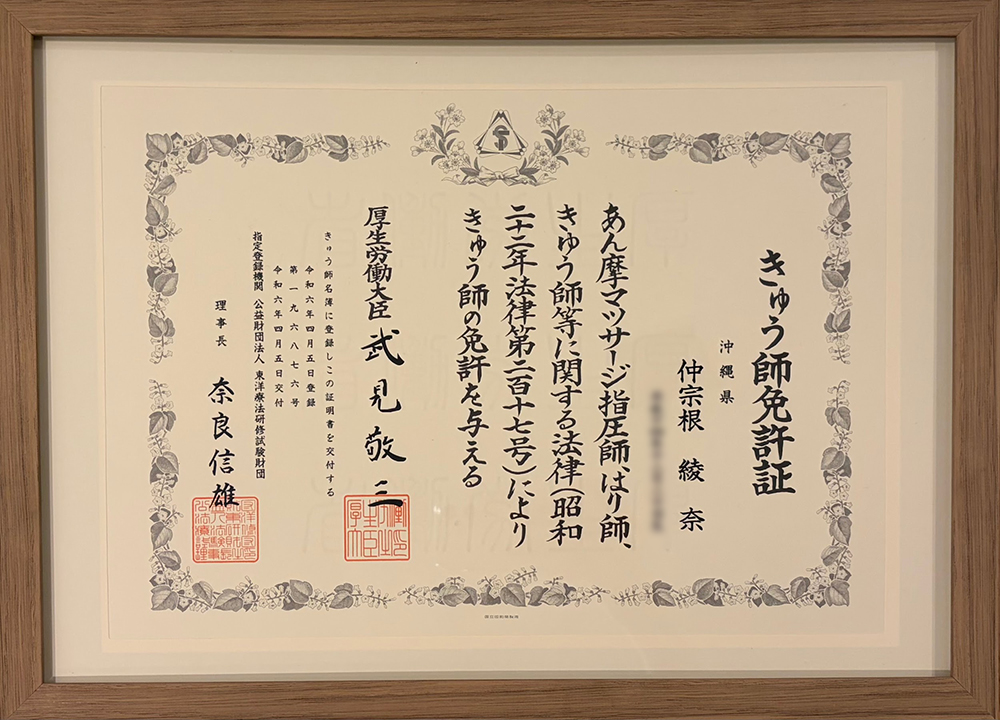 きゅう師免許証
沖縄県
仲宗根 綾奈
あん摩マッサージ指圧師、はり師、
きゅう師等に関する法律(昭和
二十二年法律第二百十七号)により
きゅう師の免許を与える
厚生労働大臣 武見敬三
きゅう師名簿に登録しこの証明書を交付する
令和六年四月五日登録
第一九六八七六号
令和六年四月五日交付
指定登録機関 公益財団法人 東洋療法研修試験財団
理事長 奈良信雄